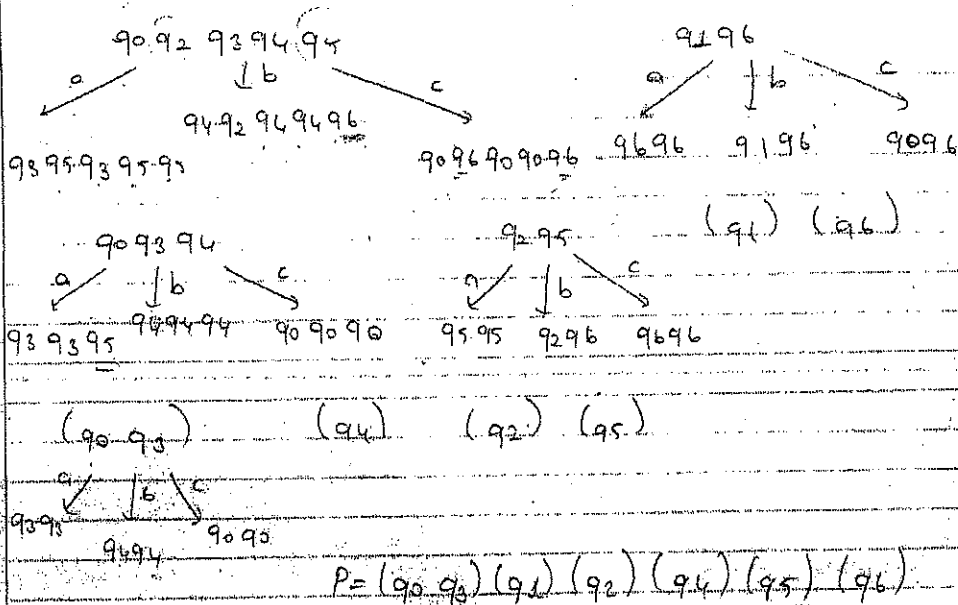 q0 q2 q3 q4 q5
a b c
q3 q5 q3 q5 q5
q4 q2 q4 q4 q6
q0 q6 q0 q0 q6
q1 q6
a b c
q6 q6 q1 q6 q0 q6
(q1) (q6)
q0 q3 q4
a b c
q3 q3 q5 q4 q4 q4 q0 q0 q0
q2 q5
a b c
q5 q5 q2 q6 q6 q6
(q0 q3) (q4) (q2) (q5)
a b c
q3 q3 q4 q4 q0 q0
P= (q0 q3) (q1) (q2) (q4) (q5) (q6)